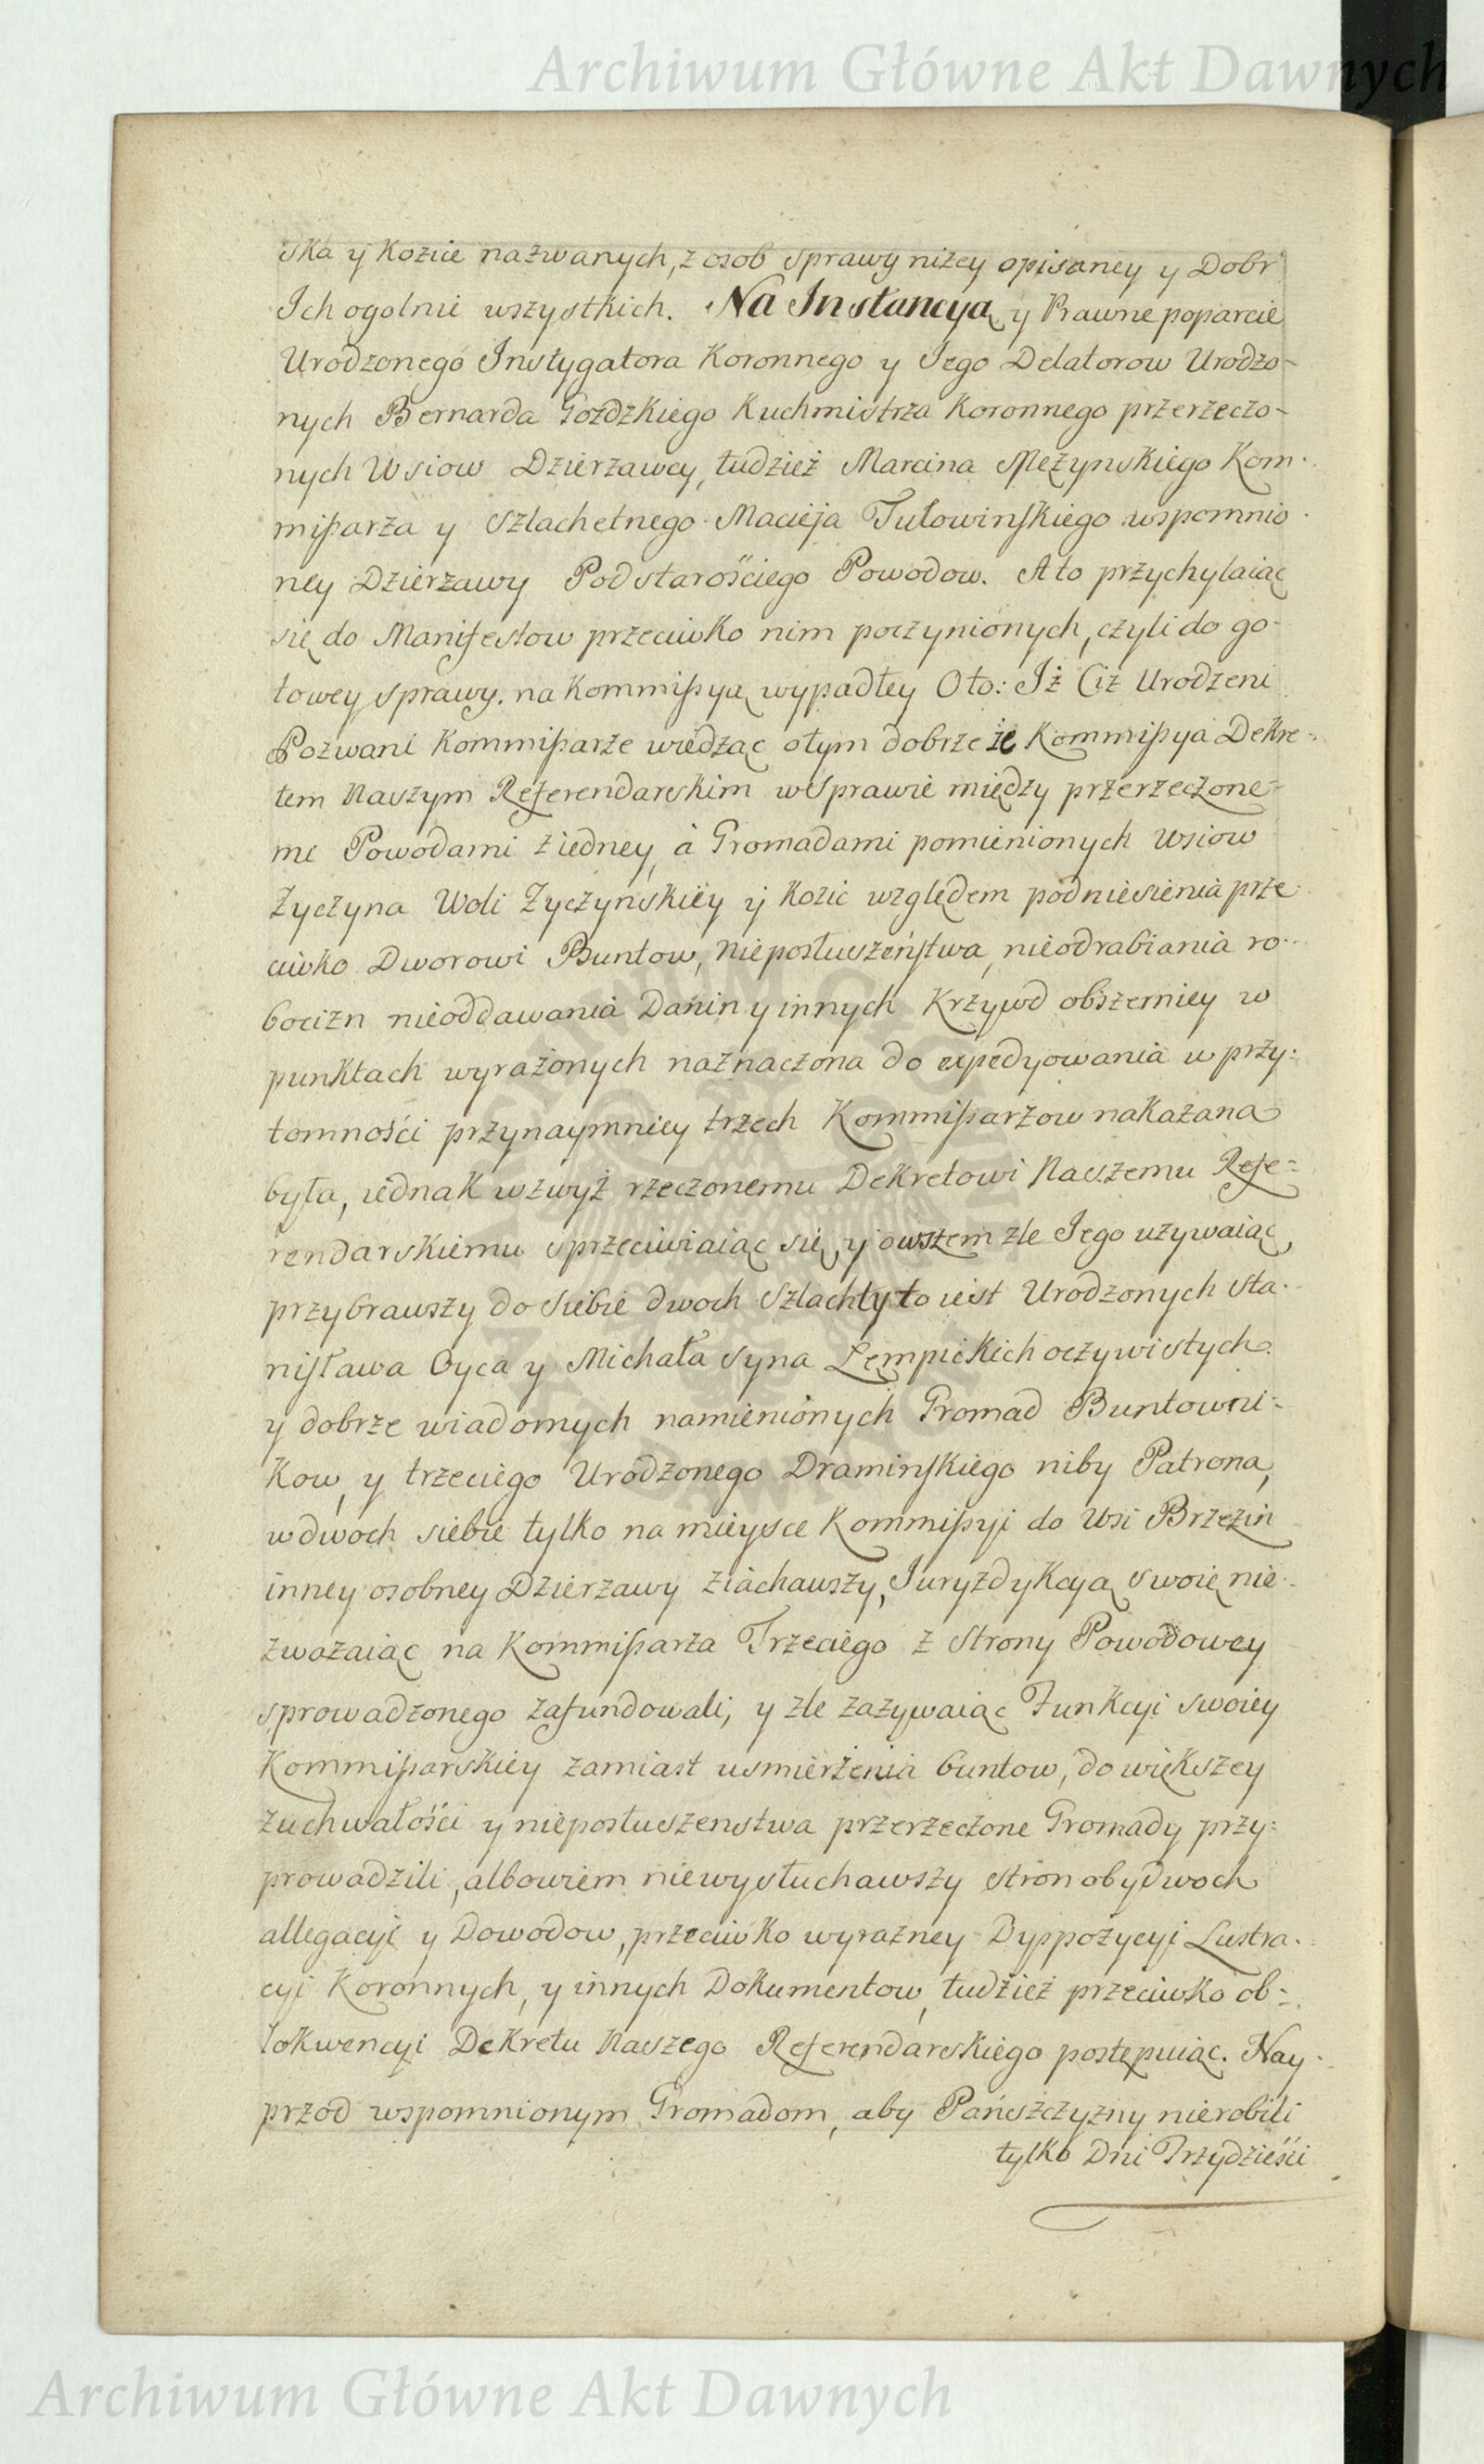 Archiwum Główne Akt Dawnych
ska y Kozice nazwanych, z osob sprawy niżey opisaney y Dobr
Ich ogolnie wszystkich. Na Instancyą y Prawne poparcie
Urodzonego Instygatora Koronnego y Jego Delatorow Urodzo-
nych Bernarda Gozdzkiego Kuchmistrza Koronnego przerzeczo-
nych Wsiow Dzierzawcy, tudzież Marcina Mężynskiego Kom-
mißarza y Szlachetnego Macieja Tułowinskiego wspomnio-
ney Dzierzawy Podstarościego Powodow. A to przychylaiąc
się do Manifestow przeciwko nim poczynionych, czyli do go-
towey sprawy na Kommißyą wypadłey Oto: Iż Ciż Urodzeni
Pozwani Kommißarze wiedząc otym dobrze że Kommißya Dekre-
tem Naszym Referendarskim w Sprawie między przerzeczone-
mi Powodami z iedney, à Gromadami pomienionych Wsiow
Zyczyna Woli Zyczyńskiey y Kozic względem podniesienia prze
ciwko Dworowi Buntow, nieposłuszeństwa, nieodrabiania ro-
bocizn nieoddawania Danin y innych Krzywd obszerniey w
punktach wyrażonych naznaczona do expedyowania w przy-
tomności przynaymniey trzech Kommißarzow nakazana
była, iednak wzwyż rzeczonemu Dekretowi Naszemu Refe-
rendarskiemu sprzeciwiaiąc się, y owszem zle Jego używaiąc,
przybrawszy do siebie dwoch Szlachty to iest Urodzonych Sta-
nisława Oyca y Michała syna Lempickich oczywistych
y dobrze wiadomych namienionych Gromad Buntowni-
kow, y trzeciego Urodzonego Draminskiego niby Patrona,
w dwoch siebie tylko na mieysce Kommißyi do Wsi Brzezin
inney osobney Dzierzawy ziachawszy, Juryzdykcyą swoię nie
zważaiąc na Kommißarza Trzeciego z Strony Powodowey
sprowadzonego zafundowali, y zle zażywaiąc Funkcyi swoiey
Kommißarskiey zamiast usmierżenia buntow, do większey
zuchwałości y nieposłuszenstwa przerzeczone Gromady przy-
prowadzili, albowiem niewysłuchawszy stron obydwoch
allegacyi y Dowodow, przeciwko wyrazney Dyspozycyi Lustra-
cyi Koronnych, y innych Dokumentow, tudzież przeciwko ob-
lokwencyi Dekretu Naszego Referendarskiego postępuiąc. Nay-
przod wspomnionym Gromadom, aby Pańszczyzny nierobili
tylko Dni Trzydzieści
Archiwum Główne Akt Dawnych